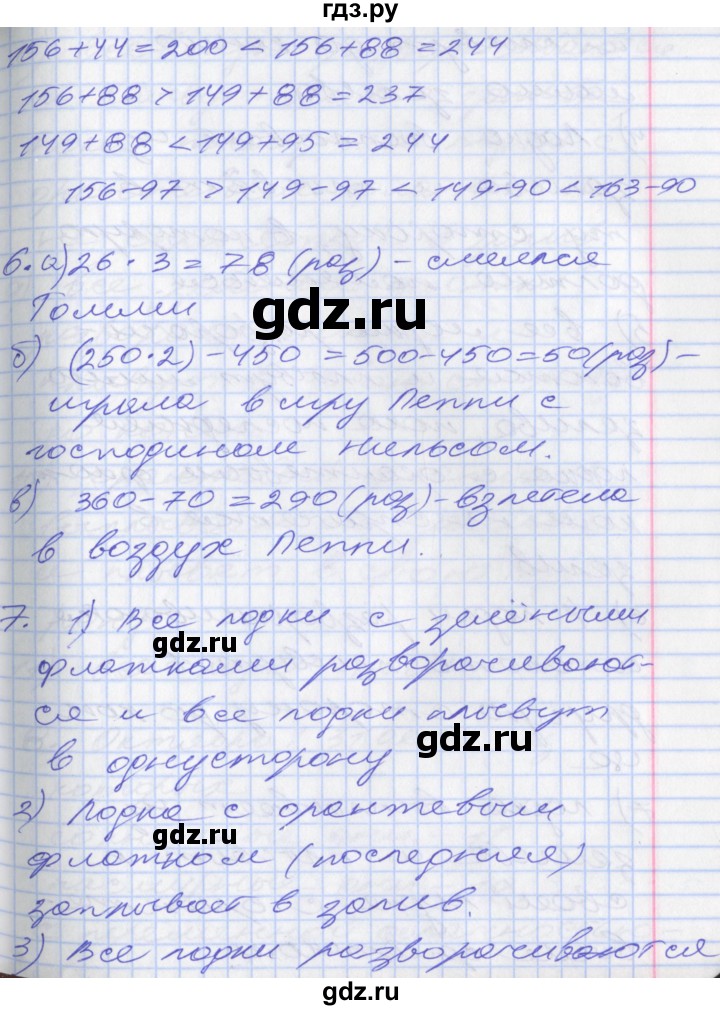 гдз.ру
156+44=200<156+88=244
156+88>149+88=237
149+88<149+95=244
156-97>149-97<149-90<163-90
6.а)26·3=78(раз)-смеялся
Томми
gdz.ru
б) (250·2)-450=500-450=50(раз)-
играла в игру Пеппи с
господином Нильсом.
в) 360-70=290(раз)-взлетела
в воздух Пеппи.
7. 1) Все лодки с зелёными
gdz.ru
флажками разворачивают-
ся и все лодки плывут
gdz.ru
в однусторону
2) Лодка с оранжевым
gdz.ru
флажком (последняя)
заплывает в залив.
3) Все лодки разворачиваются
gdz.ru